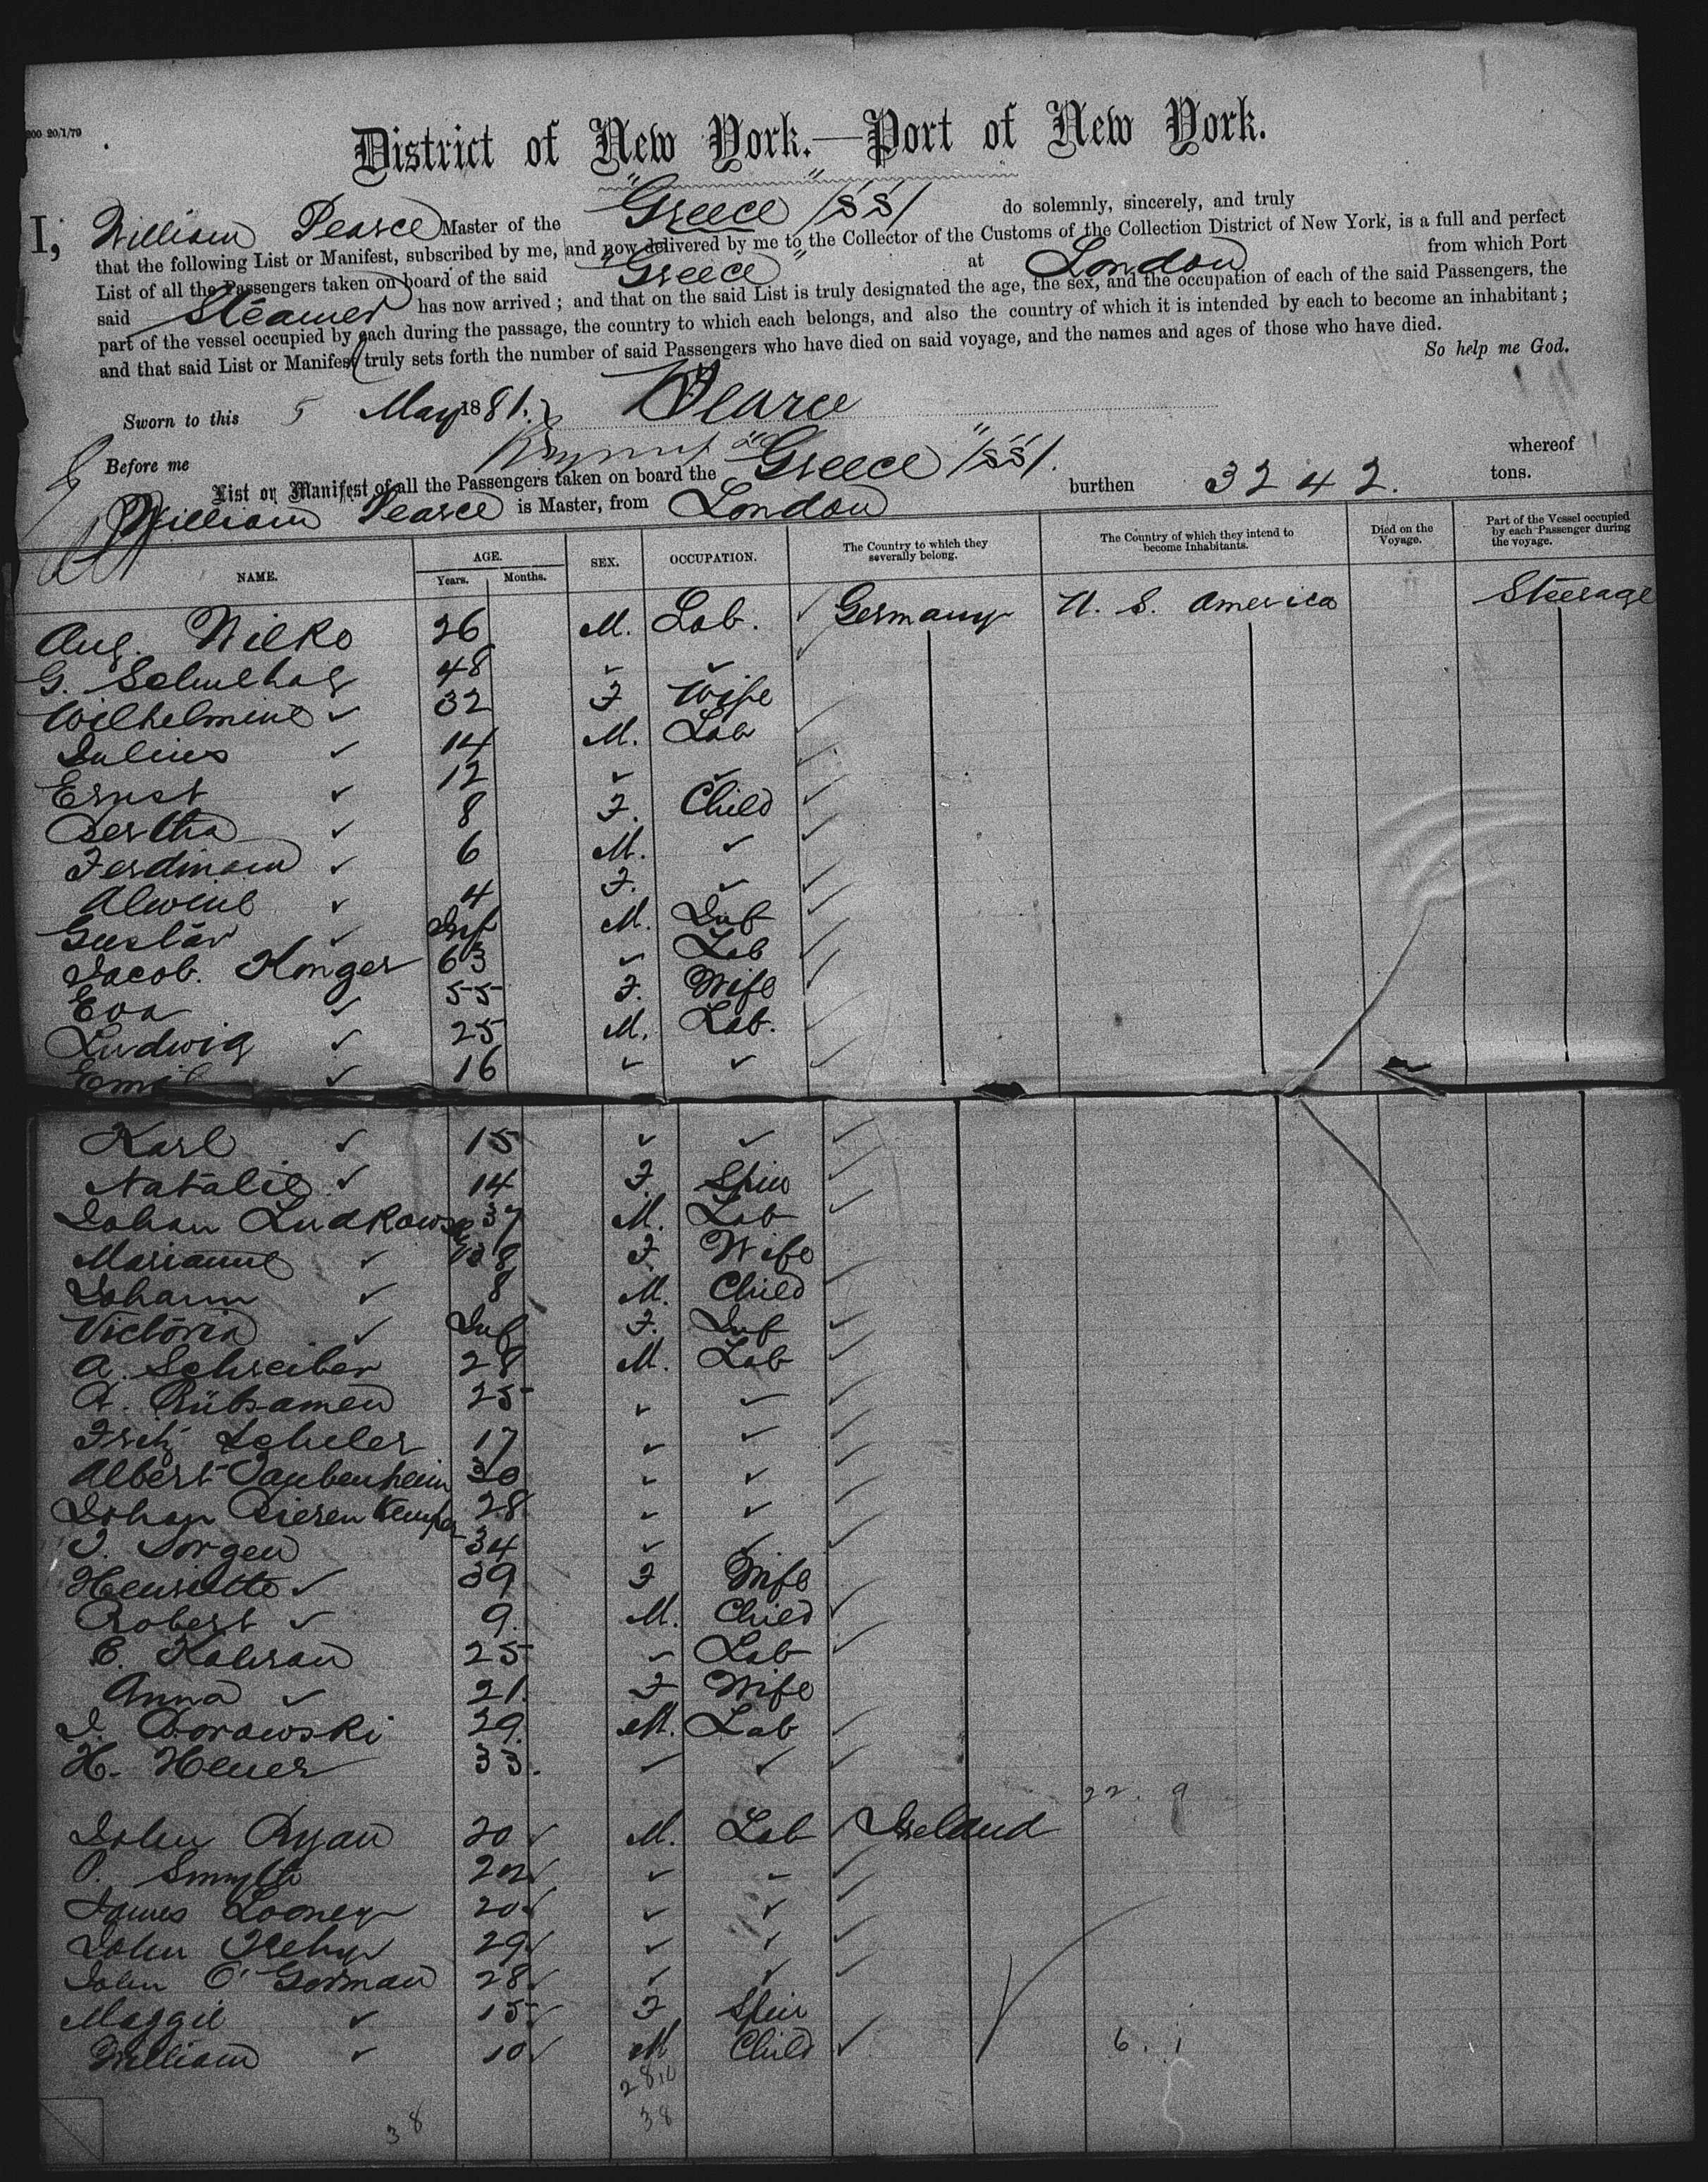 200 20/1/79
District of New York.—Port of New York.
I, William Pearce Master of the "Greece" /SS/ do solemnly, sincerely, and truly
that the following List or Manifest, subscribed by me, and now delivered by me to the Collector of the Customs of the Collection District of New York, is a full and perfect
List of all the Passengers taken on board of the said "Greece" at London from which Port
said Steamer has now arrived ; and that on the said List is truly designated the age, the sex, and the occupation of each of the said Passengers, the
part of the vessel occupied by each during the passage, the country to which each belongs, and also the country of which it is intended by each to become an inhabitant ;
and that said List or Manifest truly sets forth the number of said Passengers who have died on said voyage, and the names and ages of those who have died.
So help me God.
Sworn to this 5 May 1881. Pearce
Before me
List or Manifest of all the Passengers taken on board the "Greece" /SS/. whereof
William Pearce is Master, from London burthen 3242. tons.
NAME. AGE. Years. Months. SEX. OCCUPATION. The Country to which they severally belong. The Country of which they intend to become Inhabitants. Died on the Voyage. Part of the Vessel occupied by each Passenger during the voyage.
Aug. Wilko 26 M. Lab. ✓ Germany U. S. America Steerage
G. 48 ✓ ✓ ✓
Wilhelmine ✓ 32 F Wife
Julius ✓ 14 M. Lab ✓
Ernst ✓ 12 ✓ ✓ ✓
Bertha ✓ 8 F. Child ✓
Ferdinand ✓ 6 M. ✓ ✓
Alwine ✓ 4 F. ✓ ✓
Gustav ✓ Inf M. Inf ✓
Jacob. Konger 63 ✓ Lab ✓
Eva ✓ 55 F. Wife ✓
Ludwig ✓ 25 M. Lab. ✓
Emil ✓ 16 ✓ ✓ ✓
Karl ✓ 15 ✓ ✓ ✓
Natalie ✓ 14 F. Spin ✓
Johan Ludkowsky 37 M. Lab ✓
Marianne ✓ 38 F. Wife
Johann ✓ 8 M. Child ✓
Victoria ✓ Inf F. Inf ✓
A. Schreiber 28 M. Lab ✓
A. Rübsamen 25 ✓ ✓ ✓
Fritz Schuler 17 ✓ ✓ ✓
Albert Taubenheim 30 ✓ ✓ ✓
Johan Bierenkemper 28 ✓ ✓ ✓
J. Sorgen 34 ✓ ✓ ✓
Henriette ✓ 39 F Wife
Robert ✓ 9. M. Child ✓
E. 25 ✓ Lab ✓
Anna ✓ 21. F Wife
J. Borowski 29. M. Lab ✓
H. Heuer 33. ✓ ✓ ✓
22. 9
John Ryan 20 ✓ M. Lab ✓ Ireland
P. Smyth 20 ✓ ✓ ✓ ✓
James Looney 20 ✓ ✓ ✓ ✓
John 29 ✓ ✓ ✓ ✓
John O'Gorman 28 ✓ ✓ ✓ ✓
Maggie ✓ 15 ✓ F Spin ✓
William ✓ 10 ✓ M Child ✓ 6. 1
28.10
38 38